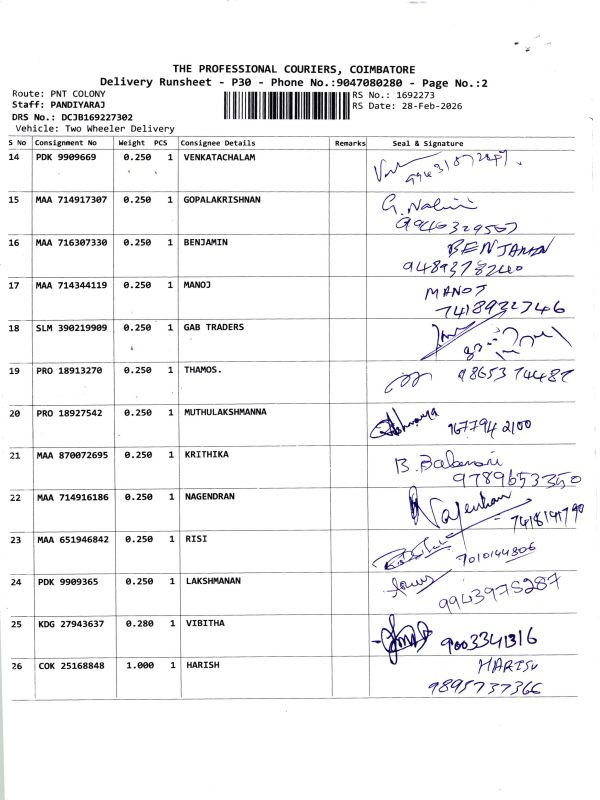 THE PROFESSIONAL COURIERS, COIMBATORE
Delivery Runsheet - P30 - Phone No.:9047080280 - Page No.:2
Route: PNT COLONY
Staff: PANDIYARAJ
DRS No.: DCJB169227302
Vehicle: Two Wheeler Delivery
RS No.: 1692273
RS Date: 28-Feb-2026
S No Consignment No Weight PCS Consignee Details Remarks Seal & Signature
14 PDK 9909669 0.250 1 VENKATACHALAM
15 MAA 714917307 0.250 1 GOPALAKRISHNAN G. Nalini
16 MAA 716307330 0.250 1 BENJAMIN BENJAMIN
9489378240
17 MAA 714344119 0.250 1 MANOJ MANOJ
7418932746
18 SLM 390219909 0.250 1 GAB TRADERS
19 PRO 18913270 0.250 1 THAMOS. 9865374487
20 PRO 18927542 0.250 1 MUTHULAKSHMANNA 9677942100
21 MAA 870072695 0.250 1 KRITHIKA B.
9789653350
22 MAA 714916186 0.250 1 NAGENDRAN
23 MAA 651946842 0.250 1 RISI
7010144806
24 PDK 9909365 0.250 1 LAKSHMANAN
9943975287
25 KDG 27943637 0.280 1 VIBITHA
9003341316
26 COK 25168848 1.000 1 HARISH HARISH
9895737366